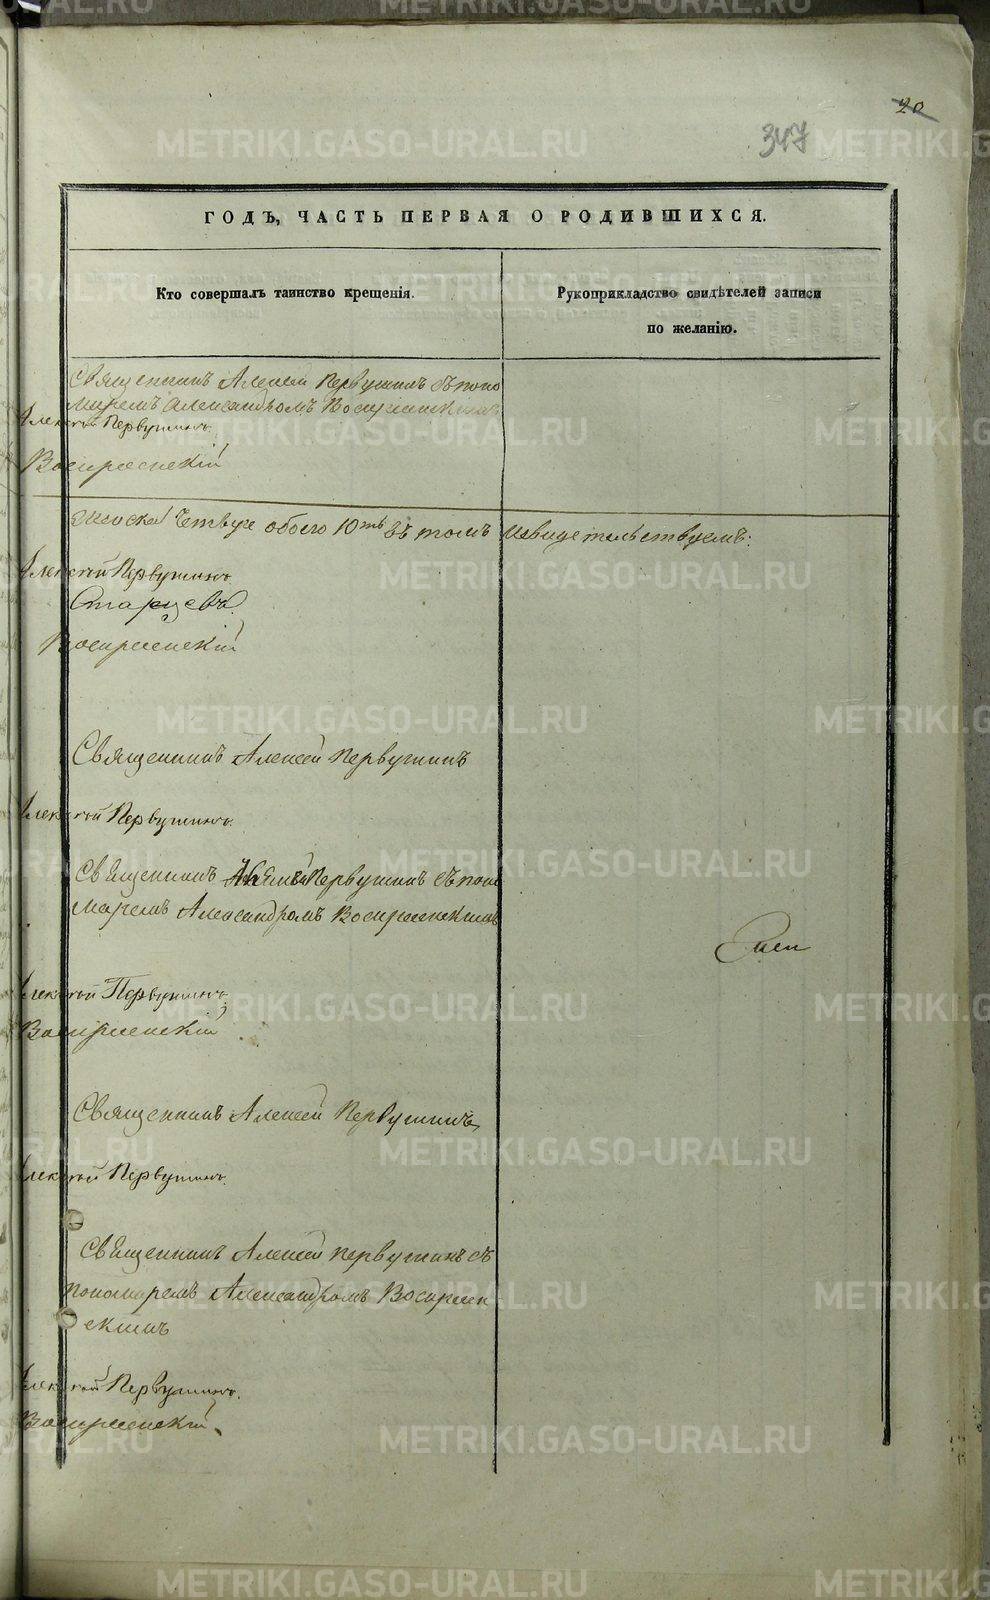 20
347
ГОДЪ, ЧАСТЬ ПЕРВАЯ О РОДИВШИХСЯ.
Кто совершалъ таинство крещенія.
Рукоприкладство свидѣтелей записи
по желанію.
Священникъ Алексѣй Первушинъ съ поно
маремъ Александромъ Воскресенскимъ
Алексѣй Первушинъ.
Воскресенскій
обоего 10ть въ томъ и свидетельствуемъ:
Алексѣй Первушинъ.
Старцевъ.
Воскресенскій
Священникъ Алексѣй Первушинъ
Алексѣй Первушинъ.
Священникъ Алексѣй Первушинъ съ поно
маремъ Александромъ Воскресенскимъ
Алексѣй Первушинъ.
Воскресенскій
Священникъ Алексѣй Первушинъ
Алексѣй Первушинъ.
Священникъ Алексѣй Первушинъ съ
пономаремъ Александромъ Воскресен
скимъ
Алексѣй Первушинъ.
Воскресенскій.
METRIKI.GASO-URAL.RU